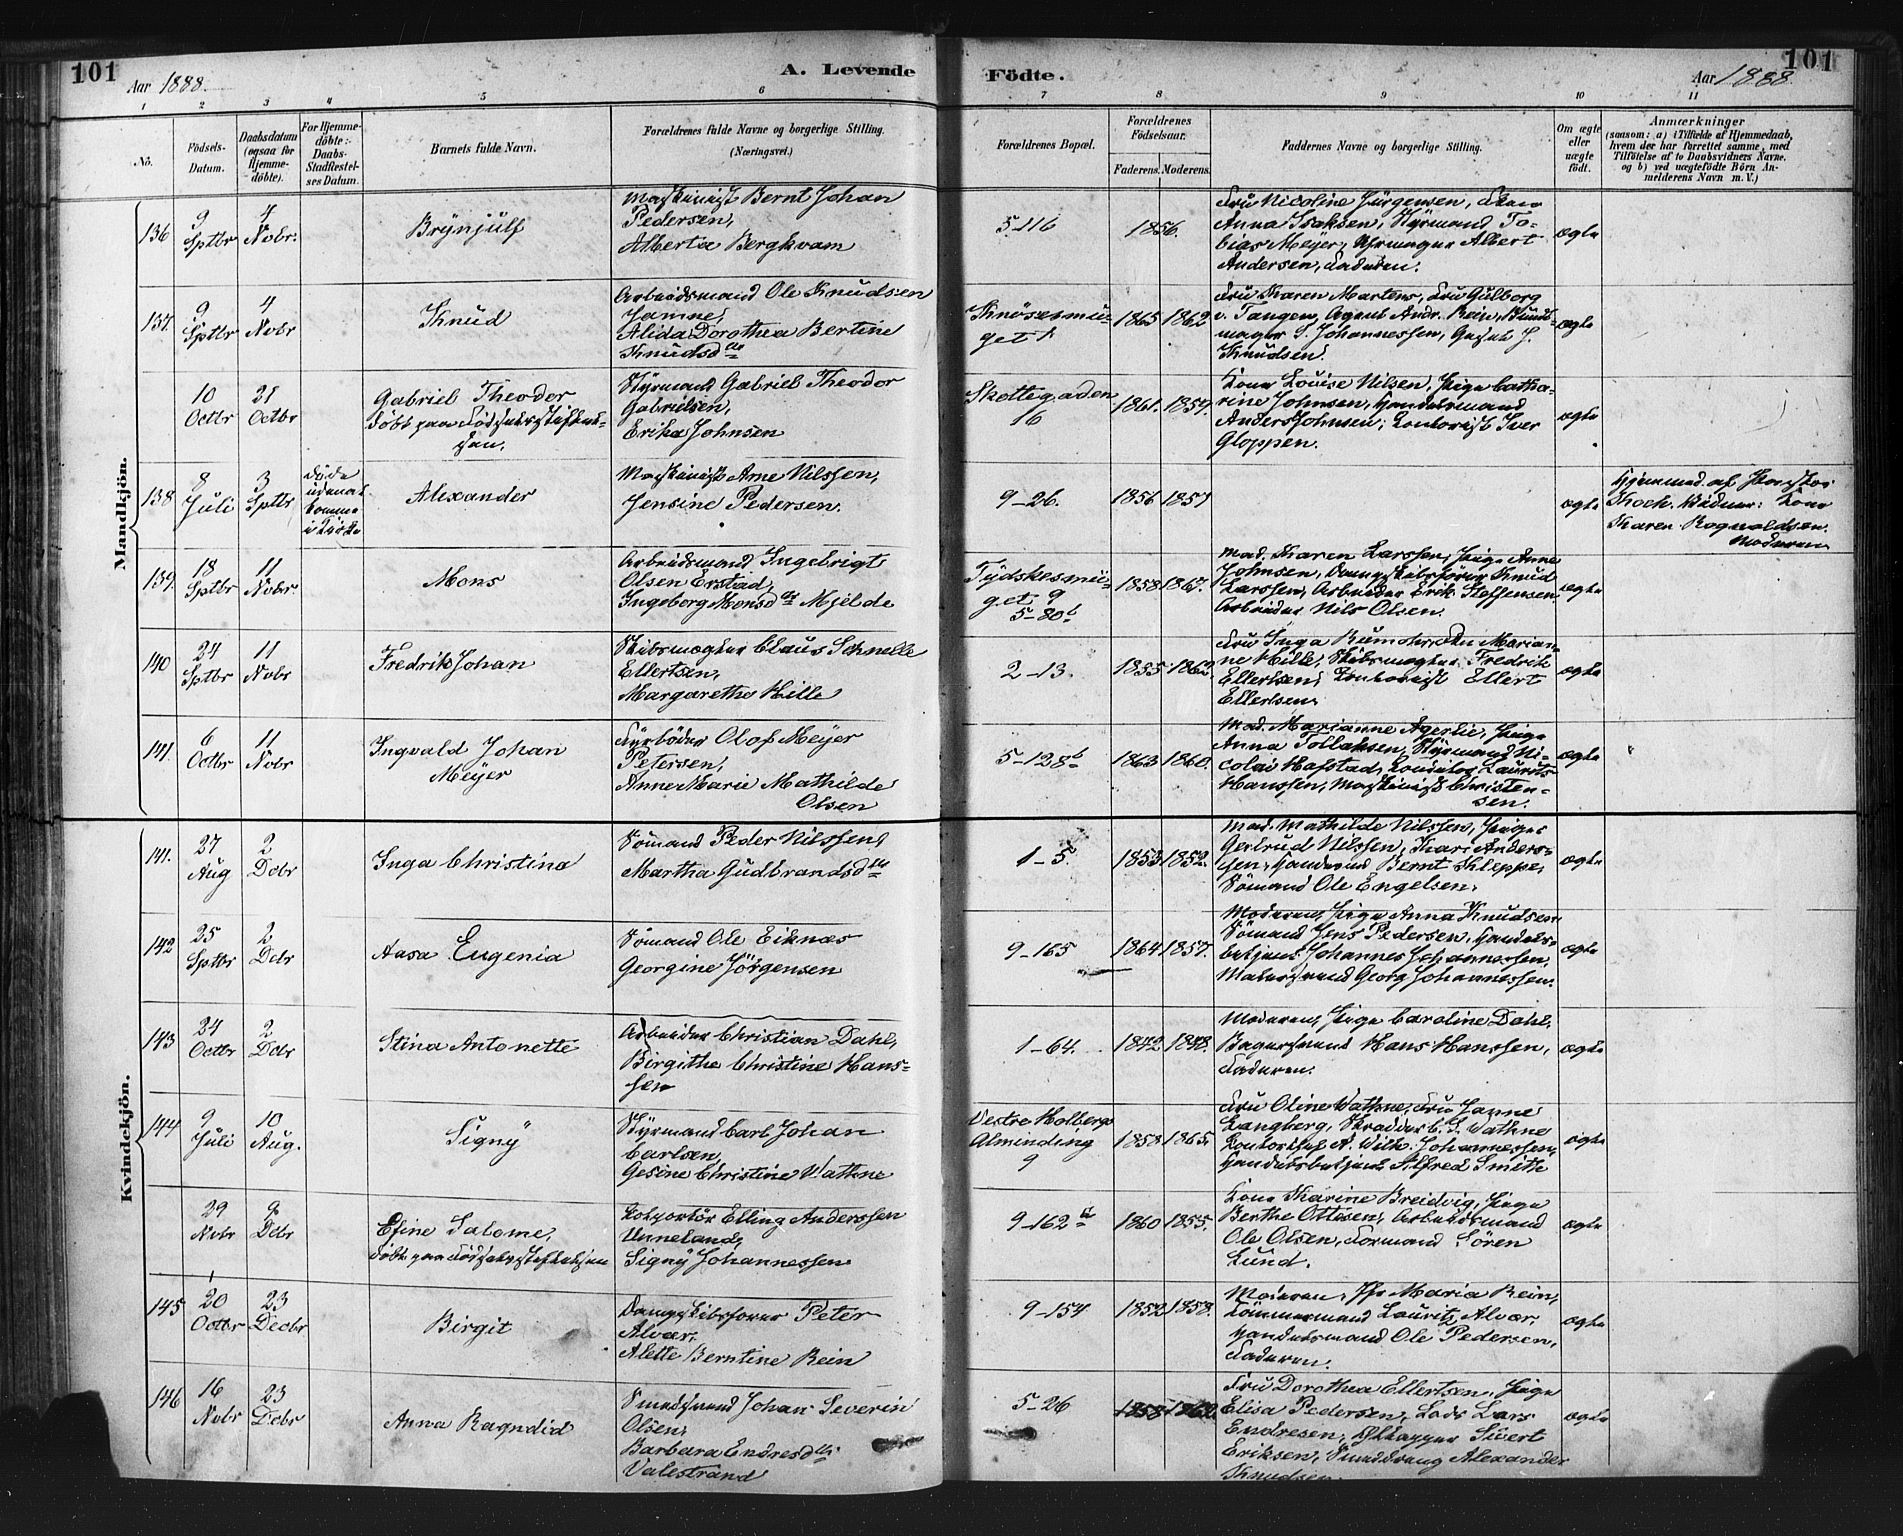 101
Aar 1888.
A. Levende
Födte.
Aar 1888.
101
1 2 3 4 5 6 7 8 9 10 11
No.
Födsels-
Datum.
Daabsdatum
(ogsaa for
Hjemme-
döbte).
For Hjemme-
döbte:
Daabs-
Stadfæstel-
ses Datum.
Barnets fulde Navn.
Forældrenes fulde Navne og borgerlige Stilling.
(Næringsvei.)
Forældrenes Bopæl.
Forældrenes
Födselsaar.
Faderens. Moderens.
Faddernes Navne og borgerlige Stilling.
Om ægte
eller
uægte
födt.
Anmærkninger
(saasom: a) i Tilfælde af Hjemmedaab,
hvem der har forrettet samme, med
Tilföielse af to Daabsvidners Navne.
og b) ved uægtefödte Börn An-
melderens Navn m. V.)
Mandkjön.
136
9
Sptbr
4
Novbr.
Brynjulf
Maskinist Bernt Johan
Pedersen,
Alberta Bergkvam
5-116
1856.
Fru Nicoline Jürgensen, Kone
Anna Isaksen, Styrmand To-
bias Meyer, Uhrmager Albert
Andersen, Faderen.
ægte
137.
9
Sptbr
4
Novbr
Knud
Arbeidsmand Ole Knudsen
Jamne,
Alida Dorothea Bertine
Knudsdtr
Knösesmu-
get 1
1865 1862
Fru Karen Martens, Fru Gulborg
v. Tangen, Agent Andr. Rein,
mager S. Johannessen, J.
Knudsen.
ægte
10
Octbr
21
Octbr
Gabriel Theodor
döbt paa Födselsstiftel-
sen.
Styrmand Gabriel Theodor
Gabrielsen,
Erika Johnsen
Skottegaden
16
1861. 1857.
Kone Louise Nilsen, Pige Catha-
rine Johnsen, Handelsmand
Anders Johnsen, Kontorist Iver
Gloppen.
ægte
138
8
Juli
3
Sptbr
döde
udenat
komme
i Kirke
Alexander
Maskinist Arne Nilssen,
Jensine Pedersen.
9-26.
1856 1857
ægte
Hjemmed. af Jordmor
Koch. Vidner: Kone
Karen Ragnvaldsen
Moderen
139.
18
Sptbr
11
Novbr.
Mons
Arbeidsmand Ingebrigt
Olsen Erstad,
Ingeborg Monsdtr Mjelde
Tydskesmu-
get 9
5-80b
1858 1867.
Mad. Karen Larssen, Pige Anne
Johnsen, Dampskibsförer Knud
Larssen, Arbeider Erik Steffensen
Arbeider Nils Olsen.
ægte
140
24
Sptbr
11
Novbr
Fredrik Johan
Skibsmægler Claus Schnelle
Ellertsen,
Margarethe Hille
2-13.
1855 1863.
Fru Inga Rumohr, Marian-
ne Hille, Skibsmægler Fredrik
Ellertsen, Kontorist Ellert
Ellertsen.
ægte
141.
6
Octbr
11
Novbr
Ingvald Johan
Meyer
Fyrböder Olof Meyer
Petersen,
Anne Marie Mathilde
Olsen
5-138b
1863 1860.
Mad. Marianne Agerlie, Pige
Anna Tollaksen, Styrmand Ni-
colai Hafstad, Konditor Laurits
Hanssen, Maskinist Christen-
sen.
ægte
Kvindekjön.
141.
27
Aug
2
Dcbr
Inga Christina
Sömand Peder Nilssen,
Martha Gudbrandsdtr
1-5.
1853 1852.
Mad. Mathilde Nilssen, Piger
Gertrud Nilssen, Kari Anders-
sen, Bernt Kleppe,
Sömand Ole Engelsen.
ægte
142
25
Sptbr
2
Dcbr
Aasa Eugenia
Sömand Ole Eiknæs
Georgine Jörgensen
9-165
1864 1857.
Moderen, Pige Anna Knudsen
Sömand Jens Pedersen, Handels-
betjent Johannes Johannessen,
Malersvend Georg Johannessen.
ægte
143
24
Octbr
2
Dcbr
Stina Antonette
Arbeider Christian Dahl,
Birgithe Christine Hans-
sen
1-64.
1842 1848.
Moderen, Pige Caroline Dahl,
Bagersvend Hans Hanssen,
Faderen.
ægte
144
9
Juli
10
Aug.
Signy
Styrmand Carl Johan
Carlsen,
Gesine Christine Wathne
Vestre Holbergs
Alminding
9
1858 1865.
Fru Oline Wathne, Fru Janne
Langberg, Skrædder C. S. Wathne
Kontorchef A. Wilh. Johannessen,
Handelsbetjent Alfred Smith
ægte
29
Novbr
9
Dcbr
Efine Salome,
döbt paa Födselsstiftelsen
Kolportör Elling Anderssen
Unneland,
Signy Johannessen
9-162a
1860 1855.
Kone Karine Breidvig, Pige
Berthe Ottesen, Arbeidsmand
Ole Olsen, Formand Sören
Lund.
ægte
145
20
Octbr
23
Decbr
Birgit
Dampskibsförer Peter
Alvær,
Alette Berntine Rein
9-154
1852 1858.
Moderen, Jfr Maria Rein,
Tömmermand Lauritz Alvær,
Handelsmand Ole Pedersen,
Faderen.
ægte
146
16
Novbr
23
Dcbr
Anna Ragndid
Smedsvend Johan Severin
Olsen,
Barbara Endresdtr
Valestrand
5-26
1858 1862.
Fru Dorothea Ellertsen, Pige
Elisa Pedersen, Lods Lars
Endresen, Ölltapper Sivert
Eriksen, Smeddreng Alexander
Knudsen.
ægte